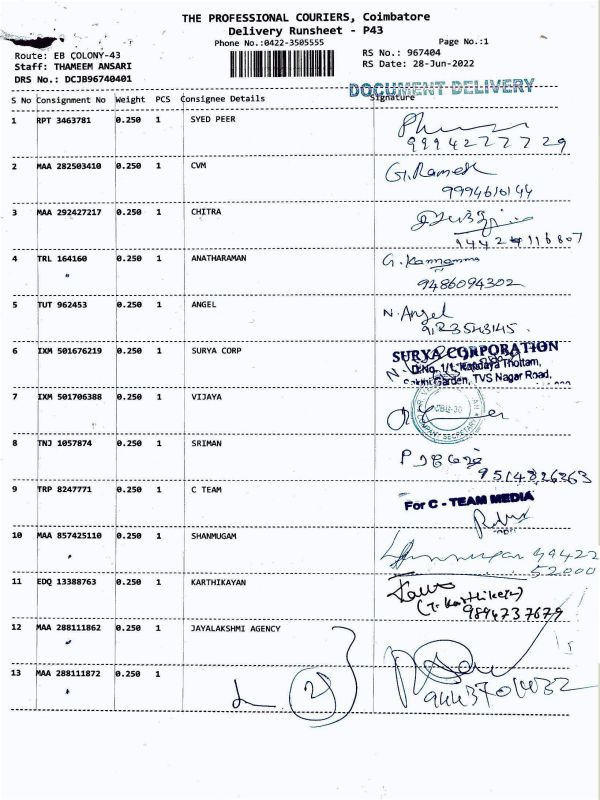 THE PROFESSIONAL COURIERS, Coimbatore
Delivery Runsheet - P43
Phone No.:0422-3505555
Page No.:1
Route: EB COLONY-43
RS No.: 967404
Staff: THAMEEM ANSARI
RS Date: 28-Jun-2022
DRS No.: DCJB96740401
DOCUMENT DELIVERY
S No Consignment No Weight PCS Consignee Details Signature
1 RPT 3463781 0.250 1 SYED PEER
9994277729
2 MAA 282503410 0.250 1 CVM G. Ramesh
9994610144
3 MAA 292427217 0.250 1 CHITRA
4 TRL 164160 0.250 1 ANATHARAMAN G. Kannamma
9486094302
5 TUT 962453 0.250 1 ANGEL N. Angel
6 IXM 501676219 0.250 1 SURYA CORP SURYA CORPORATION
D.No. 1/1, Kapdaya Thottam,
Sakthi Garden, TVS Nagar Road,
7 IXM 501706388 0.250 1 VIJAYA
COMPANY SECRETARY
8 TNJ 1057874 0.250 1 SRIMAN
9514826263
9 TRP 8247771 0.250 1 C TEAM For C - TEAM MEDIA
10 MAA 857425110 0.250 1 SHANMUGAM 99422
52000
11 EDQ 13388763 0.250 1 KARTHIKAYAN
9894737679
12 MAA 288111862 0.250 1 JAYALAKSHMI AGENCY
13 MAA 288111872 0.250 1